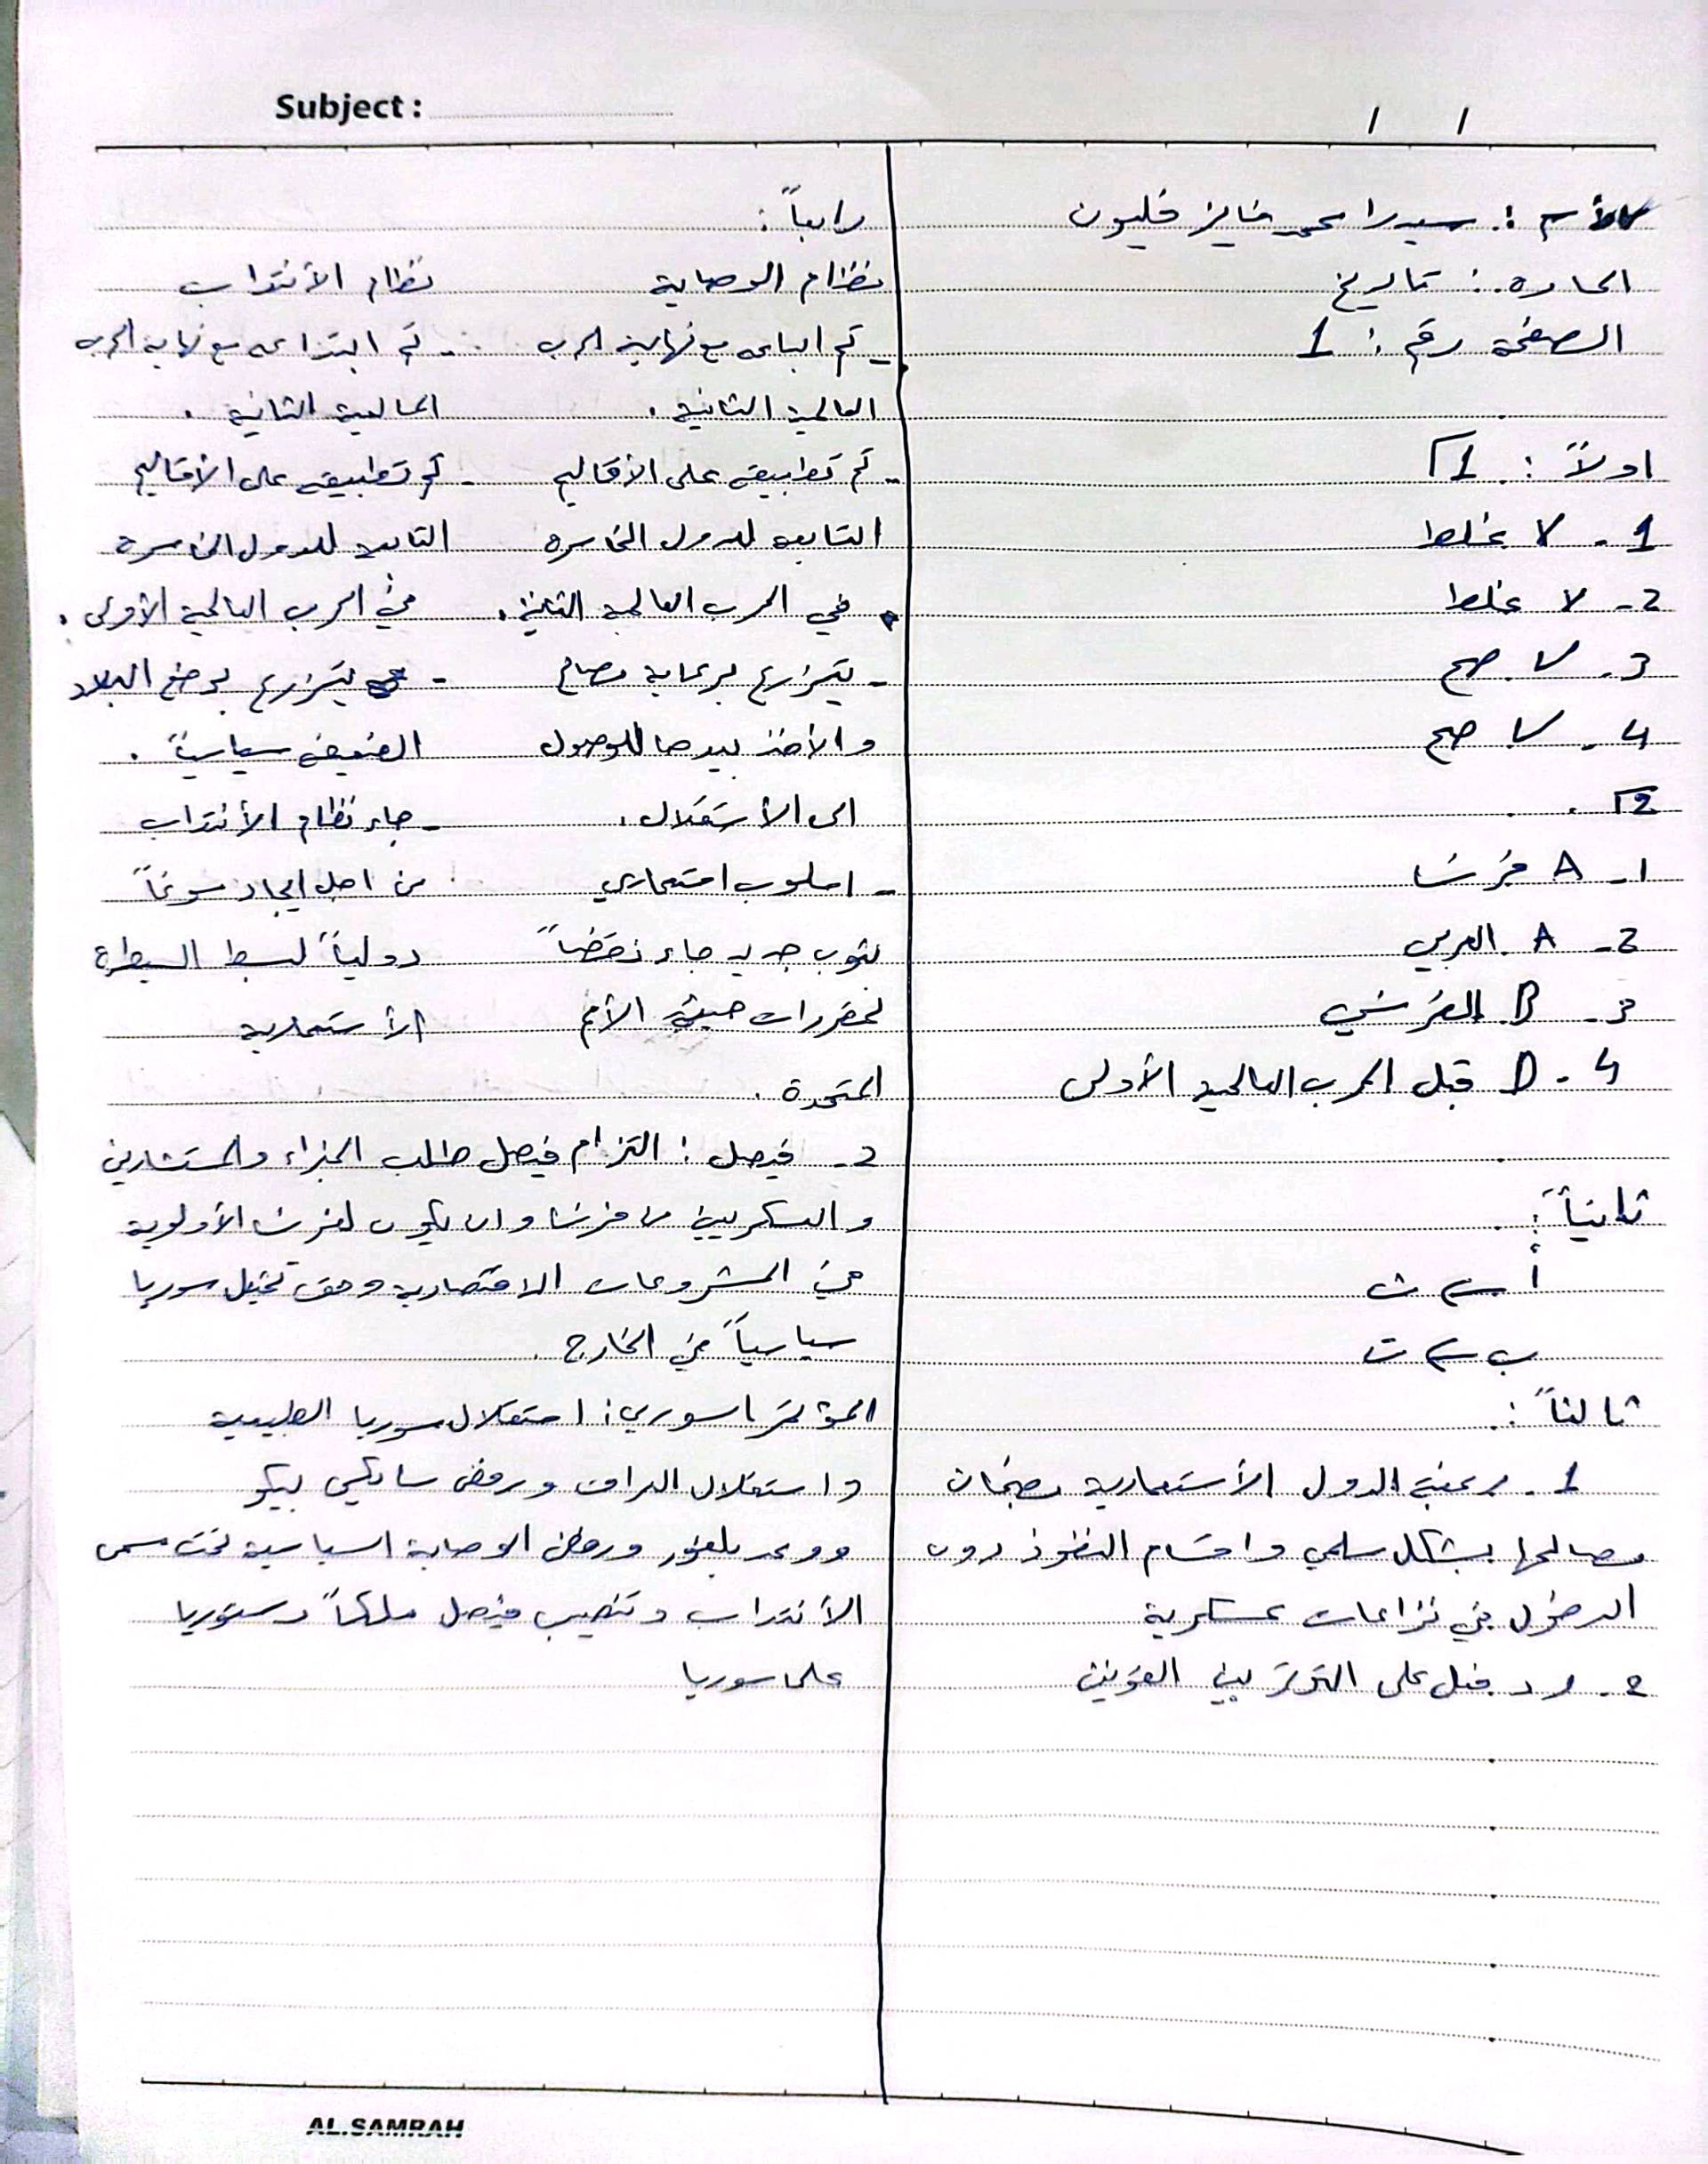 Subject :
/ /
الأسم : سيدرا محمد فايز فليون
المادة : تاريخ
الصفحة رقم : 1
اولاً : 1
1 - لا غلط
2 - لا غلط
3 - صح
4 - صح
2
1 - A فرنسا
2 - A العربي
3 - B الفرنسي
4 - D قبل الحرب العالمية الأولى
ثانياً :
أ ث
ب ت
ثالثاً :
1 - رغبة الدول الأستعمارية بضمان
مصالحها بشكل سلمي واقتسام النفوذ دون
الدخول في نزاعات عسكرية
2 - رد فعل على التوتر بين القوتين
رابعاً :
نظام الوصاية
- تم اتباعه مع نهاية الحرب
العالمية الثانية .
- تم تطبيقه على الأقاليم
التابعة للدول الخاسرة
في الحرب العالمية الثانية .
- يتذرع برعاية مصالح
والأخذ بيدها للوصول
الى الأستقلال .
- اسلوب استعماري
بثوب جديد جاء نقضاً
لمقررات هيئة الأمم
المتحدة .
نظام الأنتداب
- تم ابتداعه مع نهاية الحرب
العالمية الثانية .
- تم تطبيقه على الأقاليم
التابعة للدول الخاسرة
في الحرب العالمية الأولى .
- يتذرع بوضع البلاد
الضعيف سياسياً .
- جاء نظام الأنتداب
من اجل ايجاد سوغاً
دولياً لبسط السيطرة
الأستعمارية
2 - فيصل : التزام فيصل طلب الخبراء والمستشارين
والعسكريين من فرنسا وان يكون لفرنسا الأولوية
في المشروعات الاقتصادية وحق تمثيل سوريا
سياسياً في الخارج .
المؤتمر السوري : استقلال سوريا الطبيعية
واستقلال العراق ورفض سايكس بيكو
ووعد بلفور ورفض الوصاية السياسية تحت مسمى
الأنتداب وتنصيب فيصل ملكاً دستوريا
على سوريا
AL.SAMRAH